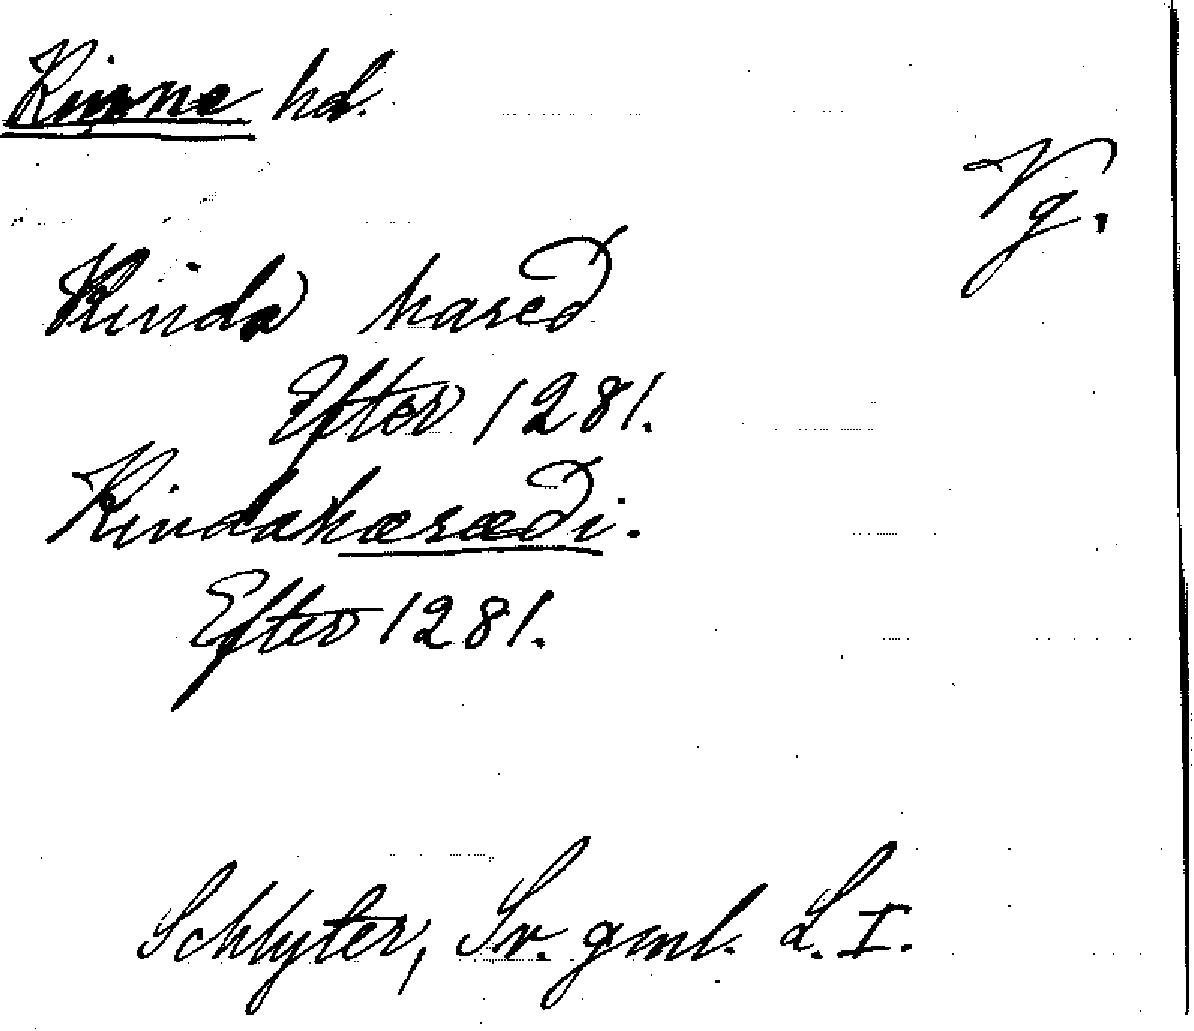 Kinne hd.
Vg.
Kinda hæred
Efter 1281.
Kindahæræđi.
Efter 1281.
Schlyter, Sv. gml. L. I.